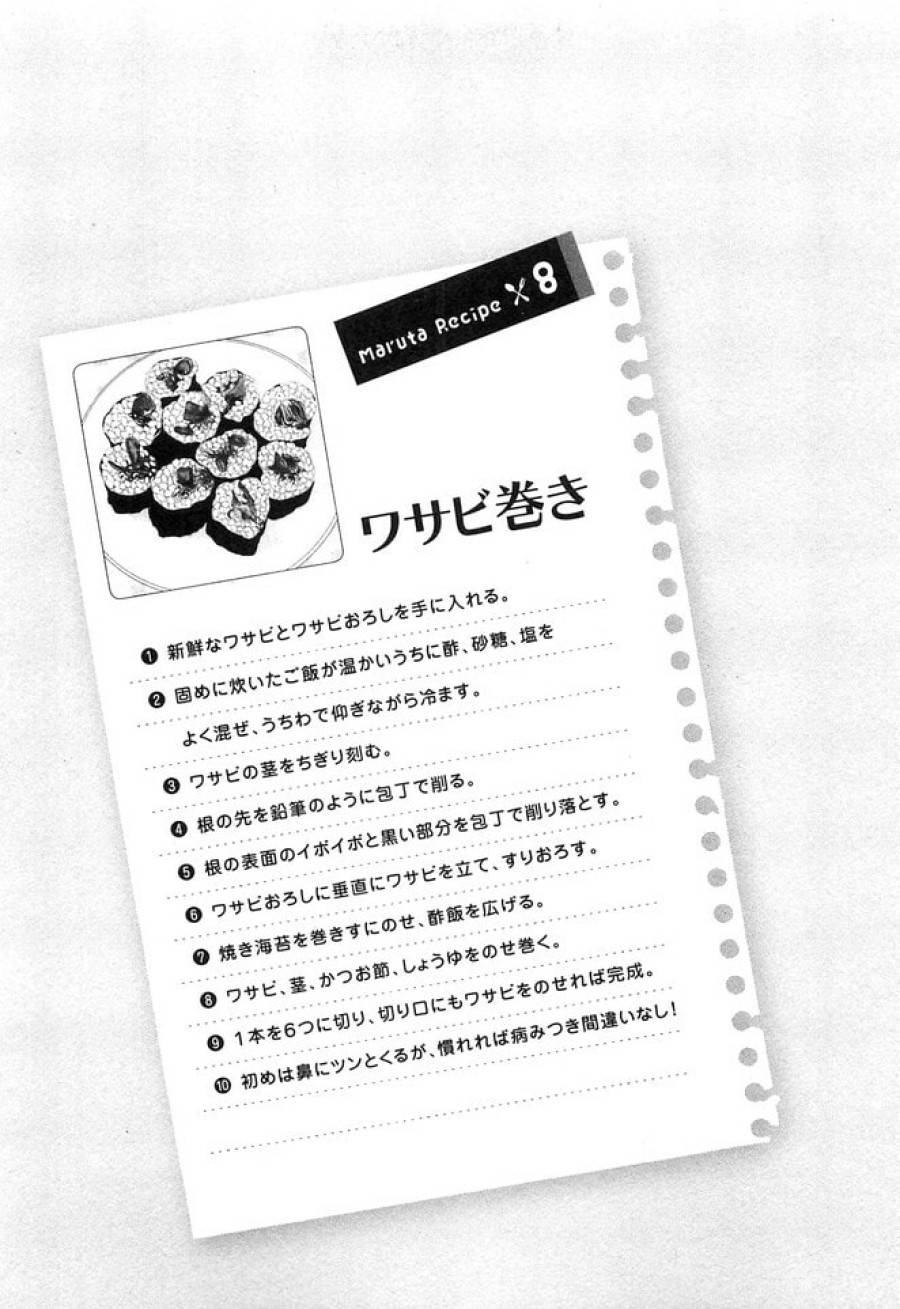 Maruta Recipe 8
ワサビ巻き
❶ 新鮮なワサビとワサビおろしを手に入れる。
❷ 固めに炊いたご飯が温かいうちに酢、砂糖、塩を
よく混ぜ、うちわで仰ぎながら冷ます。
❸ ワサビの茎をちぎり刻む。
❹ 根の先を鉛筆のように包丁で削る。
❺ 根の表面のイボイボと黒い部分を包丁で削り落とす。
❻ ワサビおろしに垂直にワサビを立て、すりおろす。
❼ 焼き海苔を巻きすにのせ、酢飯を広げる。
❽ ワサビ、茎、かつお節、しょうゆをのせ巻く。
❾ 1本を6つに切り、切り口にもワサビをのせれば完成。
❿ 初めは鼻にツンとくるが、慣れれば病みつき間違いなし!